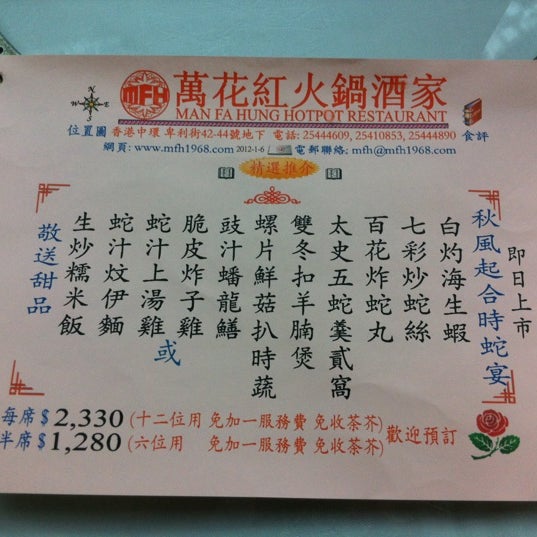 N
W E
S
MFH
萬花紅火鍋酒家
MAN FA HUNG HOTPOT RESTAURANT
位置圖 香港中環 卑利街42-44號地下 電話: 25444609, 25410853, 25444890 食評
網頁: www.mfh1968.com 2012-1-6 電郵聯絡: mfh@mfh1968.com
精選推介
即日上市
秋風起合時蛇宴
白灼海生蝦
七彩炒蛇絲
百花炸蛇丸
太史五蛇羹貳窩
雙冬扣羊腩煲
螺片鮮菇扒時蔬
豉汁蟠龍鱔
脆皮炸子雞
或
蛇汁上湯雞
蛇汁炆伊麵
生炒糯米飯
敬送甜品
每席$2,330 (十二位用 免加一服務費 免收茶芥)
半席$1,280 (六位用 免加一服務費 免收茶芥)
歡迎預訂